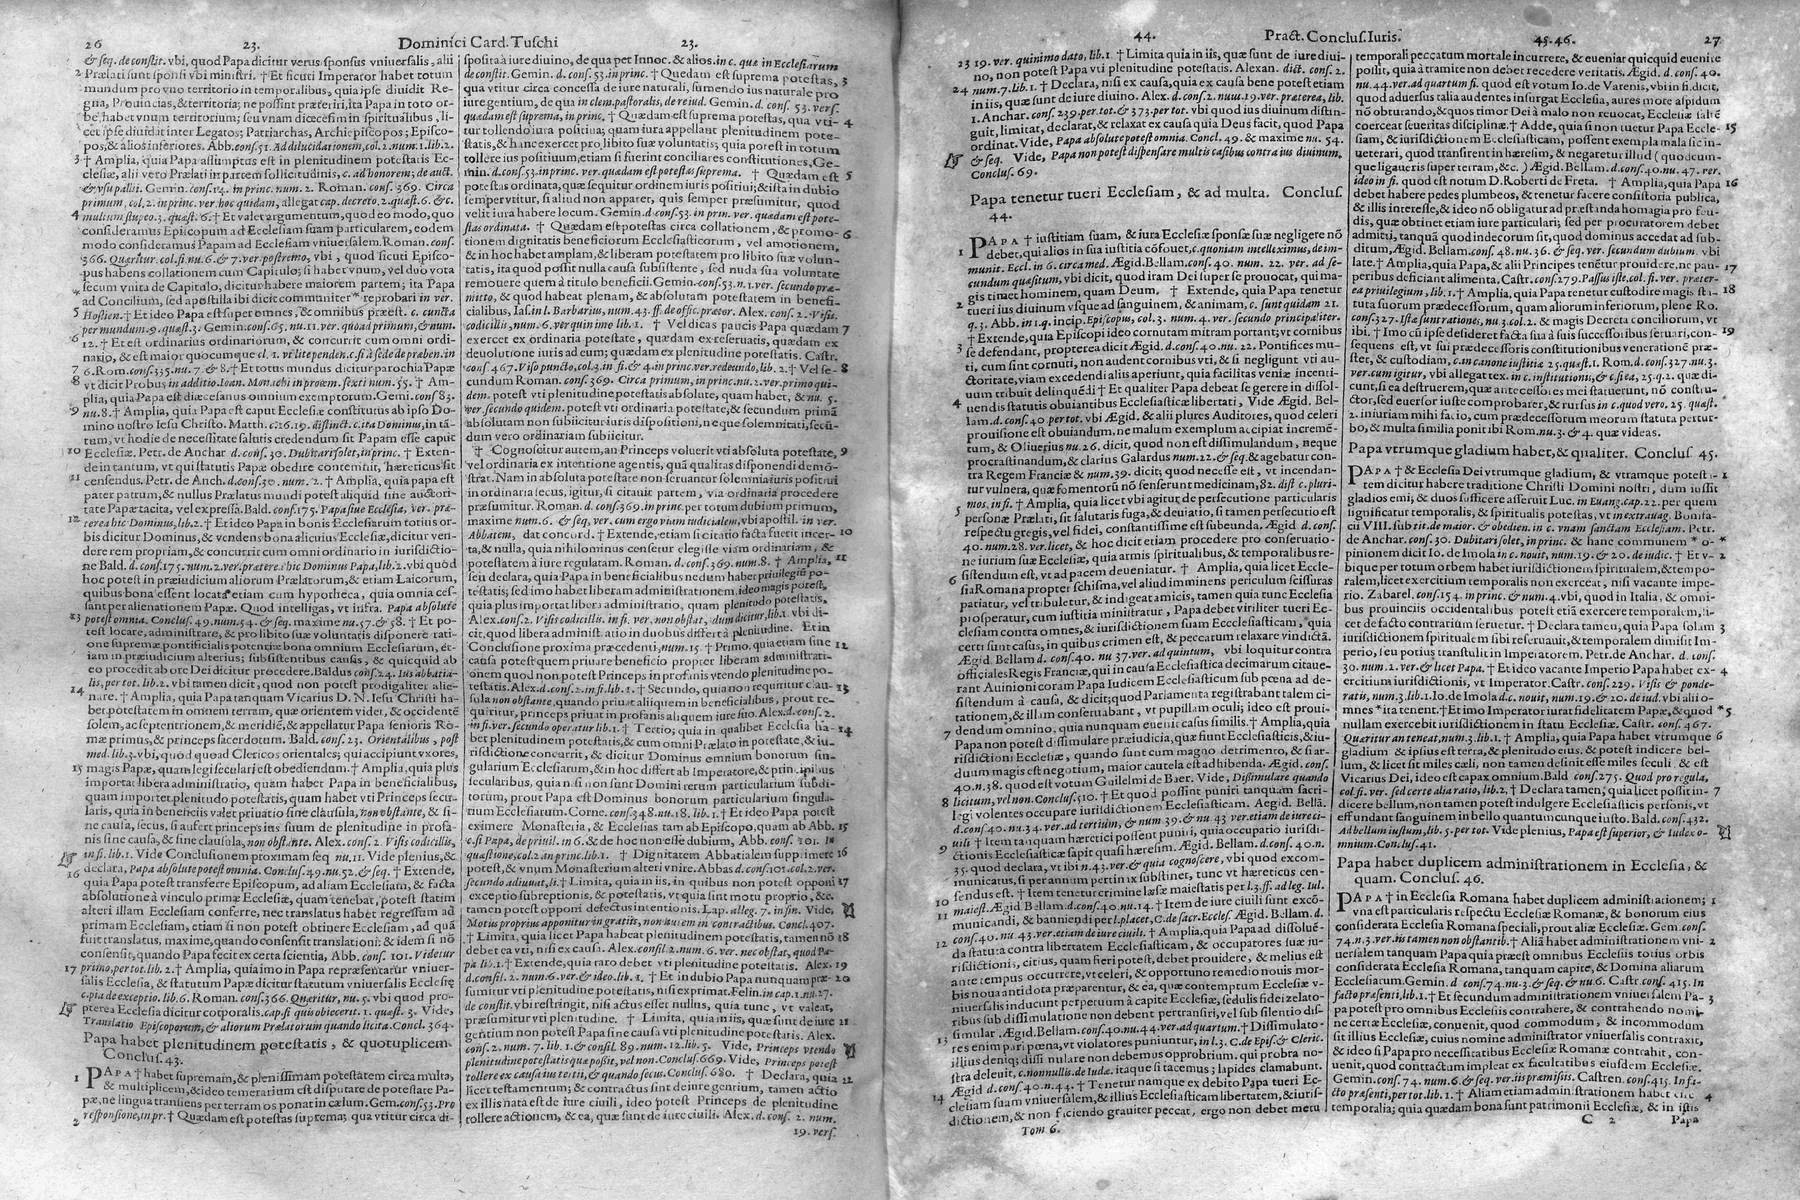 26 23. Dominici Card. Tuschi 23.
& seq. de constit. vbi, quod Papa dicitur verus sponsus vniuersalis, alii
2 Prælati sunt sponsi vbi ministri. † Et sicuti Imperator habet totum
mundum pro vno territorio in temporalibus, quia ipse diuidit Re-
gna, Prouincias, & territoria; ne possint præteriri, ita Papa in toto or-
be, habet vnum territorium; seu vnam diœcesim in spiritualibus, li-
cet ipse diuidat inter Legatos; Patriarchas, Archiepiscopos; Episco-
pos, & alios inferiores. Abb. cons. 51. Ad dilucidationem, col. 2. num. 1. lib. 2.
3 † Amplia, quia Papa assumptus est in plenitudinem potestatis Ec-
clesiæ, alii vero Prælati in partem sollicitudinis, c. ad honorem; de auct.
& vsu pallii. Gemin. cons. 14. in princ. num. 2. Roman. cons. 369. Circa
primum, col. 2. in princ. ver. hoc quidam, allegat cap. decreto, 2. quæst. 6. & c.
4 multum stupeo. 3. quæst. 6. † Et valet argumentum, quod eo modo, quo
consideramus Episcopum ad Ecclesiam suam particularem, eodem
modo consideramus Papam ad Ecclesiam vniuersalem. Roman. cons.
366. Quæritur. col. fi. nu. 6. & 7. ver. postremo, vbi, quod sicuti Episco-
pus habens collationem cum Capitulo; si habet vnum, vel duo vota
secum vnita de Capitulo, dicitur habere maiorem partem; ita Papa
ad Concilium, sed apostilla ibi dicit communiter reprobari in ver.
5 Hostien. † Et ideo Papa est super omnes, & omnibus præest. c. cuncta
per mundum. 9. quæst. 3. Gemin. cons. 65. nu. 11. ver. quoad primum, & num.
6 12. † Et est ordinarius ordinariorum, & concurrit cum omni ordi-
nario, & est maior quocumque cl. 1. vt lite pendente. c. fi à sede de præben. in
7 6. Rom. cons. 335. nu. 7. & 8. † Et totus mundus dicitur parochia Papæ
8 vt dicit Probus in additio. Ioan. Monachi in proœm. sexti num. 55. † Am-
plia, quia Papa est diœcesanus omnium exemptorum. Gemi. cons 83.
9 nu. 8. † Amplia, quia Papa est caput Ecclesiæ constitutus ab ipso Do-
mino nostro Iesu Christo. Matth. c. 16. 19. distinct. c. ita Dominus, in tā-
tum, vt hodie de necessitate salutis credendum sit Papam esse caput
10 Ecclesiæ. Petr. de Anchar d. cons. 30. Dubitari solet, in princ. † Exten-
de in tantum, vt qui statutis Papæ obedire contemnit, hæreticus sit
11 censendus. Petr. de Anch. d. cons. 30. num. 2. † Amplia, quia papa est
pater patrum, & nullus Prælatus mundi potest aliquid sine auctori-
tate Papæ tacita, vel expressa. Bald. cons. 175. Papa siue Ecclesia, ver. præ-
12 terea hic Dominus, lib. 2. † Et ideo Papa in bonis Ecclesiarum totius or-
bis dicitur Dominus, & vendens bona alicuius Ecclesiæ, dicitur ven-
dere rem propriam, & concurrit cum omni ordinario in iurisdictio-
ne Bald. d. cons. 175. num. 2. ver. præterea hic Dominus Papa, lib. 2. vbi quod
hoc potest in præiudicium aliorum Prælatorum, & etiam Laicorum,
quibus bona essent locata etiam cum hypotheca, quia omnia ces-
sant per alienationem Papæ. Quod intelligas, vt infra. Papa absolute
13 potest omnia. Conclus. 49. num. 54. & seq. maxime nu. 57. & 58. † Et po-
test locare, administrare, & pro libito suæ voluntatis disponere rati-
one supremæ pontificialis potentiæ bona omnium Ecclesiarum, et-
iam in præiudicium alterius; subsistentibus causis, & quicquid ab
eo procedit ab ore Dei dicitur procedere. Baldus cons. 24. Ius abbatia-
lis, per tot. lib. 2. vbi tamen dicit, quod non potest prodigaliter alie-
14 nare. † Amplia, quia Papa tanquam Vicarius D. N. Iesu Christi ha-
bet potestatem in omnem terram, quæ orientem videt, occidentē
solem, ac septentrionem, & meridiē, & appellatur Papa senioris Ro-
mæ primus, & princeps sacerdotum. Bald. cons. 23. Orientalibus, post
med. lib. 3. vbi, quod quod Clericos orientales; qui accipiunt vxores,
15 magis Papæ, quam legi seculari est obediendum. † Amplia, quia plus
importat libera administratio, quam habet Papa in beneficialibus,
quam importet plenitudo potestatis, quam habet vti Princeps secu-
laris, quia in beneficiis valet priuatio sine clausula, non obstante, & si-
ne causa, secus, si aufert princeps ius suum de plenitudine in profa-
nis sine causa, & sine clausula, non obstante. Alex. cons. 2. Visis codicillis,
in fi. lib. 1. Vide Conclusionem proximam seq nu. 11. Vide plenius, &
16 declara, Papa absolute potest omnia. Conclus. 49. nu. 52. & seq. † Extende,
quia Papa potest transferre Episcopum, ad aliam Ecclesiam, & facta
absolutione à vinculo primæ Ecclesiæ, quam tenebat, potest statim
alteri illam Ecclesiam conferre, nec translatus habet regressum ad
primam Ecclesiam, etiam si non potest obtinere Ecclesiam, ad quā
fuit translatus, maxime, quando consensit translationi: & idem si nō
consensit, quando Papa fecit ex certa scientia, Abb. cons. 101. Videtur
17 primo, per tot. lib. 2. † Amplia, quia imo in Papa repræsentatur vniuer-
salis Ecclesia, & statutum Papæ dicitur statutum vniuersalis Ecclesię
c. pia de exceptio. lib. 6. Roman. cons. 366. Quæritur, nu. 5. vbi quod pro-
pterea Ecclesia dicitur corporalis. cap. si quis obiecerit. 1. quæst. 3. Vide,
Translatio Episcoporum, & aliorum Prælatorum quando licita. Concl. 364.
Papa habet plenitudinem potestatis, & quotuplicem.
Conclus. 43.
1 PAPA † habet supremam, & plenissimam potestatem circa multa,
& multiplicem, ideo temerarium est disputare de potestate Pa-
pæ, ne lingua transiens per terram os ponat in cælum. Gem. cons. 53. Pro
2 responsione, in pr. † Quædam est potestas suprema; qua vtitur circa di-
sposita à iure diuino, de qua per Innoc. & alios. in c. quæ in Ecclesiarum
de constit. Gemin. d. cons. 53. in princ. † Quædam est suprema potestas, 3
qua vtitur circa concessa de iure naturali, sumendo ius naturale pro
iure gentium, de qua in clem. pastoralis, de re iud. Gemin. d. cons. 53. vers.
quædam est suprema, in princ. † Quædam est suprema potestas, qua vti- 4
tur tollendo iura positiua; quam iura appellant plenitudinem pote-
statis, & hanc exercet pro libito suæ voluntatis; quia potest in totum
tollere ius positiuum, etiam si fuerint conciliares constitutiones, Ge-
min. d. cons. 53. in princ. ver. quædam est potestas suprema. † Quædam est 5
potestas ordinata, quæ sequitur ordinem iuris positiui; & ista in dubio
semper vtitur, si aliud non apparet, quis semper præsumitur, quod
velit iura habere locum. Gemin. d cons. 53. in prin. ver. quædam est pote-
stas ordinata. † Quædam est potestas circa collationem, & promo- 6
tionem dignitatis beneficiorum Ecclesiasticorum, vel amotionem,
& in hoc habet amplam, & liberam potestatem pro libito suæ volun-
tatis, ita quod possit nulla causa subsistente, sed nuda sua voluntate
remouere quem à titulo beneficii. Gemin. cons. 53. n. 1. ver. secundo præ-
mitto, & quod habeat plenam, & absolutam potestatem in benefi-
cialibus, Ias. in l. Barbarius, num. 43. ff. de offic. prætor. Alex. cons. 2. Visis
codicillis, num. 6. ver quin imo lib. 1. † Vel dicas paucis Papa quædam 7
exercet ex ordinaria potestate, quædam ex reseruatis, quædam ex
deuolutione iuris ad eum; quædam ex plenitudine potestatis. Castr.
cons. 467. Viso puncto, col. 3. in fi. & 4. in princ. ver. redeundo, lib. 2. † Vel se- 8
cundum Roman. cons. 369. Circa primum, in princ. nu. 2. ver. primo qui-
dem. potest vti plenitudine potestatis absolute, quam habet, & nu. 5.
ver. secundo quidem. potest vti ordinaria potestate; & secundum primā
absolutam non subiicitur iuris dispositioni, neque solemnitati, secū-
dum vero ordinariam subiicitur.
† Cognoscitur autem, an Princeps voluerit vti absoluta potestate, 9
vel ordinaria ex intentione agentis, quā qualitas disponendi demō-
strat. Nam in absoluta potestate non seruantur solemnia iuris positiui
in ordinaria secus, igitur, si citauit partem, via ordinaria procedere
præsumitur. Roman. d. cons. 369. in princ. per totum dubium primum,
maxime num. 6. & seq. ver. cum ergo viam iudicialem, vbi apostil. in ver.
Abbatem, dat concord. † Extende, etiam si citatio facta fuerit incer- 10
ta, & nulla, quia nihilominus censetur elegisse viam ordinariam, &
potestatem à iure regulatam. Roman. d. cons. 369. num. 8. † Amplia, 11
seu declara, quia Papa in beneficialibus nedum habet priuilegiū po-
testatis; sed imo habet liberam administrationem. ideo magis patet,
quia plus importat libera administratio, quam plenitudo potestatis.
Alex. cons. 2. Visis codicillis. in fi. ver. non obstat, dum dicitur, lib. 1. vbi di-
cit, quod libera administratio in duobus differt à plenitudine. Et in
Conclusione proxima præcedenti, num. 15. † Primo, quia etiam sine 12
causa potest quem priuare beneficio propter liberam administrati-
onem quod non potest Princeps in profanis vtendo plenitudine po-
testatis. Alex. d. cons. 2. in fi. lib. 1. † Secundo, quia non requiritur clau- 13
sula non obstante, quando priuat aliquem in beneficialibus, prout re-
quiritur, princeps priuat in profanis aliquem iure suo. Alex. d. cons. 2.
in fi. ver. secundo operatur lib. 1. † Tertio; quia in qualibet Ecclesia ha- 14
bet plenitudinem potestatis, & cum omni Prælato in potestate, & iu-
risdictione concurrit, & dicitur Dominus omnium bonorum sin-
gularium Ecclesiarum, & in hoc differt ab Imperatore, & principibus
secularibus, quia nisi non sunt Domini rerum particularium subdi-
torum, prout Papa est Dominus bonorum particularium singula-
rium Ecclesiarum. Corne. cons. 348. nu. 18. lib. 1. † Et ideo Papa potest
eximere Monasteria, & Ecclesias tam ab Episcopo, quam ab Abb. 15
c. si Papa, de priuil. in 6. & de hoc non esse dubium, Abb. cons. 101. in
quæstione, col. 2. an princ. lib. 1. † Dignitatem Abbatialem supprimere 16
potest, & vnum Monasterium alteri vnire. Abbas d. cons. 101. col. 2. ver.
secundo adiuuat, li. † Limita, quia in iis, in quibus non potest opponi 17
exceptio subreptionis, & potestatis, vt quia sint motu proprio, &c.
tamen potest opponi defectus intentionis. Lap. alleg. 7. in fin. Vide,
Motus proprius apponitur in gratiis, non autem in contractibus. Concl. 407.
† Limita, quia licet Papa habeat plenitudinem potestatis, tamen nō 18
debet ea vti, nisi ex causa. Alex. consil 2. num. 6. ver. nec obstat, quod Pa-
pa lib. 1. † Extende, quia raro debet vti plenitudine potestatis. Alex. 19
d. consil. 2. num. 6. ver. & ideo lib. 1. † Et in dubio Papa nunquam præ- 20
sumitur vti plenitudine potestatis, nisi exprimat. Felin. in cap. 1. nu. 27.
de constit. vbi restringit, nisi actus esset nullus, quia tunc, vt valeat,
præsumitur vti plenitudine. † Limita, quia in iis, quæ sunt de iure 21
gentium non potest Papa sine causa vti plenitudine potestatis. Alex.
cons. 2. num. 7. lib. 1. & consil. 89. num. 12. lib. 5. Vide, Princeps vtendo
plenitudine potestatis quæ possit, vel non. Conclus. 669. Vide, Princeps potest
tollere ex causa ius tertii, & quando secus. Conclus. 680. † Declara, quia 22
licet testamentum; & contractus sint de iure gentium, tamen actio
ex illis nata est de iure ciuili, ideo potest Princeps de plenitudine
tollere actionem, & ea, quæ sunt de iure ciuili. Alex. d. cons. 2. num.
19. vers.
44. Pract. Conclus. Iuris. 45. 46. 27
23 19. ver. quinimo dato, lib. 1. † Limita quia in iis, quæ sunt de iure diui-
no, non potest Papa vti plenitudine potestatis. Alexan. dict. cons. 2.
24 num. 7. lib. 1. † Declara, nisi ex causa, quia ex causa bene potest etiam
in iis, quæ sunt de iure diuino. Alex. d. cons. 2. num. 19. ver. præterea, lib.
1. Anchar. cons. 239. per tot. & 373. per tot. vbi quod ius diuinum distin-
guit, limitat, declarat, & relaxat ex causa quia Deus facit, quod Papa
ordinat. Vide, Papa absolute potest omnia. Concl. 49. & maxime nu. 54.
& seq. Vide, Papa non potest dispensare multis casibus contra ius diuinum,
Conclus. 69.
Papa tenetur tueri Ecclesiam, & ad multa. Conclus.
44.
1 PAPA † iustitiam suam, & iura Ecclesiæ sponsæ suæ negligere nō
debet, qui alios in sua iustitia cōfouet, c. quoniam intelleximus, de im-
munit. Eccl. in 6. circa med. Ægid. Bellam. cons. 40. num. 22. ver. ad se-
cundum quæsitum, vbi dicit, quod iram Dei super se prouocat, qui ma-
gis timet hominem, quam Deum. † Extende, quia Papa tenetur
2 tueri ius diuinum vsque ad sanguinem, & animam, c. sunt quidam 21.
q. 3. Abb. in 1. q. incip. Episcopus, col. 3. num. 4. ver. secundo principaliter.
† Extende, quia Episcopi ideo cornutam mitram portant; vt cornibus
3 se defendant, propterea dicit Ægid. d. cons. 40. nu. 22. Pontifices mu-
ti, cum sint cornuti, non audent cornibus vti, & si negligunt vti au-
ctoritate, viam excedendi aliis aperiunt, quia facilitas veniæ incenti-
uum tribuit delinquēdi † Et qualiter Papa debeat se gerere in dissol-
4 uendis statutis obuiantibus Ecclesiasticæ libertati, Vide Ægid. Bel-
lam. d. cons. 40 per tot. vbi Ægid. & alii plures Auditores, quod celeri
prouisione est obuiandum, ne malum exemplum accipiat incremē-
tum, & Oliuerius nu. 26. dicit, quod non est dissimulandum, neque
procrastinandum, & clarius Galardus num. 22. & seq. & agebatur con-
tra Regem Franciæ & num. 39. dicit; quod necesse est, vt incendan-
tur vulnera, quæ fomentorū nō senserunt medicinam, 82. dist c. pluri-
mos, in fi. † Amplia, quia licet vbi agitur de persecutione particularis
5 personæ Prælati, sit salutaris fuga, & deuiatio, si tamen persecutio est
respectu gregis, vel fidei, constantissime est subeunda. Ægid d. cons.
40. num. 28. ver. licet, & hoc dicit etiam procedere pro conseruatio-
ne iurium suæ Ecclesiæ, quia armis spiritualibus, & temporalibus re-
sistendum est, vt ad pacem deueniatur. † Amplia, quia licet Eccle-
6 sia Romana propter schisma, vel aliud imminens periculum scissuras
patiatur, vel tribuletur, & indigeat amicis, tamen quia tunc Ecclesia
prosperatur, cum iustitia ministratur, Papa debet viriliter tueri Ec-
clesiam contra omnes, & iurisdictionem suam Ecclesiasticam, quia
certi sunt casus, in quibus crimen est, & peccatum relaxare vindictā.
Ægid. Bellam d. cons. 40. nu 37. ver. ad quintum, vbi loquitur contra
officiales Regis Franciæ, qui in causa Ecclesiastica decimarum citaue-
rant Auinioni coram Papa Iudicem Ecclesiasticum sub pœna ad de-
sistendum à causa, & dicit; quod Parlamenta registrabant talem ci-
tationem, & illam conseruabant, vt pupillam oculi; ideo est proui-
dendum omnino, quia nunquam euenit casus similis. † Amplia, quia
7 Papa non potest dissimulare præiudicia, quæ fiunt Ecclesiasticis, & iu-
risdictioni Ecclesiæ, quando sunt cum magno detrimento, & si ar-
duum magis est negotium, maior cautela est adhibenda. Ægid. cons.
40. n. 38. quod est votum Guilelmi de Baer. Vide, Dissimulare quando
8 licitum, vel non. Conclus. 310. † Et quod possint puniri tanquam sacri-
legi volentes occupare iurisdictionem Ecclesiasticam. Aegid. Bellā.
d. cons. 40. nu. 34. ver. ad tertium, & num 39. & nu 43 ver. etiam de iure ci-
uili † Item tanquam hæretici possent puniri, quia occupatio iurisdi-
9 ctionis Ecclesiasticæ sapit quasi hæresim. Ægid. Bellam. d. cons. 40. n.
35. quod declara, vt ibi n. 42. ver. & quia cognoscere, vbi quod excom-
municatus, si per annum pertinax subsistat, tunc vt hæreticus cen-
sendus est. † Item tenetur crimine læsæ maiestatis per l. 3. ff. ad leg. Iul.
10 maiest. Ægid. Bellam. d. cons. 40. nu. 14. † Item de iure ciuili sunt excō-
11 municandi, & banniendi per l. placet, C. de sacr. Eccles. Ægid. Bellam. d.
cons. 40. nu. 43. ver. etiam de iure ciuili. † Amplia, quia Papa ad dissoluē-
12 da statuta contra libertatem Ecclesiasticam, & occupatores suæ iu-
risdictionis, citius, quam fieri potest, debet prouidere, & melius est
ante tempus occurrere, vt celeri, & opportuno remedio nouis mor-
bis noua antidota præparentur, & ea, quæ contemptum Ecclesiæ v-
niuersalis inducunt perpetuum à capite Ecclesiæ, sedulis fidei zelato-
ribus sub dissimulatione non debent pertransiri, vel sub silentio dis-
simular. Ægid. Bellam. cons. 40. nu. 44. ver. ad quartum. † Dissimulato-
13 res enim pari pœna, vt violatores puniuntur, in l. 3. C. de Epis. & Cleric.
illius deniq; dissimulare non debemus opprobrium. qui probra no-
stra deleuit, c. nonnullis. de Iudæ. itaque si tacemus; lapides clamabunt.
Ægid d. cons. 40. n. 44. † Tenetur namque ex debito Papa tueri Ec-
14 clesiam suam vniuersalem, & illius Ecclesiasticam libertatem, & iuris-
dictionem, & non faciendo grauiter peccat, ergo non debet metu
Tom 6.
temporali peccatum mortale incurrere, & eueniar quicquid euenire
possit, quia à tramite non debet recedere veritatis. Ægid. d. cons. 40.
nu. 44. ver. ad quartum fi. quod est votum Io. de Varenis, vbi in fi. dicit,
quod aduersus talia audentes insurgat Ecclesia, aures more aspidum
nō obturando, & quos timor Dei à malo non reuocat, Ecclesiæ saltē
coerceat seueritas disciplinæ. † Adde, quia si non tuetur Papa Eccle- 15
siam, & iurisdictionem Ecclesiasticam, possent exempla mala sic in-
ueterari, quod transirent in hæresim, & negaretur illud (quodcum-
que ligaueris super terram, &c.) Ægid. Bellam. d. cons. 40. nu. 47. ver.
ideo in fi. quod est notum D. Roberti de Freta. † Amplia, quia Papa 16
debet habere pedes plumbeos, & tenetur facere consistoria publica,
& illis interesse, & ideo nō obligatur ad præstanda homagia pro feu-
dis, quæ obtinet etiam iure particulari; sed per procuratorem debet
admitti, tanquā quod indecorum sit, quod dominus accedat ad sub-
ditum, Ægid. Bellam. cons. 48. nu. 36. & seq. ver. secundum dubium. vbi
late. † Amplia, quia Papa, & alii Principes tenetur prouidere, ne pau- 17
peribus deficiant alimenta. Castr. cons. 279. Passus iste, col. fi. ver. præter-
ea priuilegium, lib. 1. † Amplia, quia Papa tenetur custodire magis sta- 18
tuta suorum prædecessorum, quam aliorum inferiorum, plene Ro.
cons. 327. Ista sunt rationes, nu 3. col. 2. & magis Decreta Conciliorum, vt
ibi. † Imo cū ipse desideret facta sua à suis successoribus seruari, con- 19
sequens est, vt sui prædecessoris constitutionibus venerationē præ-
stet, & custodiam, c. an canone iustitiæ 25. quæst. 1. Rom. d. cons. 327. nu. 3.
ver. cum igitur, vbi allegat tex. in c. institutionis, & c. si ea, 25. q. 2. quæ di-
cunt, si ea destruerem, quæ antecessores mei statuerunt, nō constru-
ctor, sed euersor iuste comprober, & rursus in c. quod vero. 25. quæst.
2. iniuriam mihi facio, cum prædecessorum meorum statuta pertur-
bo, & multa similia ponit ibi Rom. nu. 3. & 4. quæ videas.
Papa vtrumque gladium habet, & qualiter. Conclus. 45.
PAPA † & Ecclesia Dei vtrumque gladium, & vtramque potest- 1
tem dicitur habere traditione Christi Domini nostri, dum iussit
gladios emi, & duos sufficere asseruit Luc. in Euang. cap. 22. per quem
significatur temporalis, & spiritualis potestas, vt in extrauag. Bonifa-
cii VIII. sub tit. de maior. & obedien. in c. vnam sanctam Ecclesiam. Petr.
de Anchar. cons. 30. Dubitari solet, in princ. & hanc communem * o- *
pinionem dicit Io. de Imola in c. nouit, num. 19. & 20. de iudic. † Et v- 2
bique per totum orbem habet iurisdictionem spiritualem, & tempo-
ralem, licet exercitium temporalis non exerceat, nisi vacante impe-
rio. Zabarel. cons. 154. in princ. & num. 4. vbi, quod in Italia, & omni-
bus prouinciis occidentalibus potest etiā exercere temporalem, li-
cet de facto contrarium seruetur. † Declara tamen, quia Papa solam 3
iurisdictionem spiritualem sibi reseruauit, & temporalem dimisit Im-
perio, seu potius transtulit in Imperatorem. Petr. de Anchar. d. cons.
30. num. 2. ver. & licet Papa. † Et ideo vacante Imperio Papa habet ex- 4
ercitium iurisdictionis, vt Imperator. Castr. cons. 229. Visis & ponde-
ratis, num. 3. lib. 1. Io. de Imola d. c. nouit, num. 19. & 20. de iud. vbi ali o-
mnes * ita tenent. † Et imo Imperator iurat fidelitatem Papæ, & quod *5
nullum exercebit iurisdictionem in statu Ecclesiæ. Castr. cons. 467.
Quæritur an teneat, num. 3. lib. 1. † Amplia, quia Papa habet vtrumque 6
gladium & ipsius est terra, & plenitudo eius. & potest indicere bel-
lum, & licet sit miles cæli, non tamen definit esse miles seculi & est
Vicarius Dei, ideo est capax omnium. Bald cons. 275. Quod pro regula,
col. fi. ver. sed certe alia ratio, lib. 2. † Declara tamen, quia licet possit in- 7
dicere bellum, non tamen potest indulgere Ecclesiasticis personis, vt
effundant sanguinem in bello quantumcunque iusto. Bald. cons. 432.
Ad bellum iustum, lib. 5. per tot. Vide plenius, Papa est superior, & Iudex o-
mnium. Conclus. 41.
Papa habet duplicem administrationem in Ecclesia, &
quam. Conclus. 46.
PAPA † in Ecclesia Romana habet duplicem administrationem; 1
vna est particularis respectu Ecclesiæ Romanæ, & bonorum eius
considerata Ecclesia Romana speciali, prout aliæ Ecclesiæ. Gem. cons.
74. n. 3. ver. iis tamen non obstantib. † Aliā habet administrationem vni- 2
uersalem tanquam Papa quia præest omnibus Ecclesiis totius orbis
considerata Ecclesia Romana, tanquam capite, & Domina aliarum
Ecclesiarum. Gemin. d cons. 74. nu. 3. & seq. & nu. 6. Castr. cons. 415. In
facto præsenti, lib. 1. † Et secundum administrationem vniuersalem Pa- 3
pa potest pro omnibus Ecclesiis contrahere, & contrahendo nomi-
ne certæ Ecclesiæ, conuenit, quod commodum, & incommodum
sit illius Ecclesiæ, cuius nomine administrator vniuersalis contraxit,
& ideo si Papa pro necessitatibus Ecclesiæ Romanæ contrahit, con-
uenit, quod contractum impleat ex facultatibus eiusdem Ecclesiæ.
Gemin. cons. 74. num. 6. & seq. ver. iis præmissis. Castren. cons. 415. In fa-
cto præsenti, per tot. lib. 1. † Aliam etiam administrationem habet circa 4
temporalia; quia quædam bona sunt patrimonii Ecclesiæ, & in istis
C 2 Papa